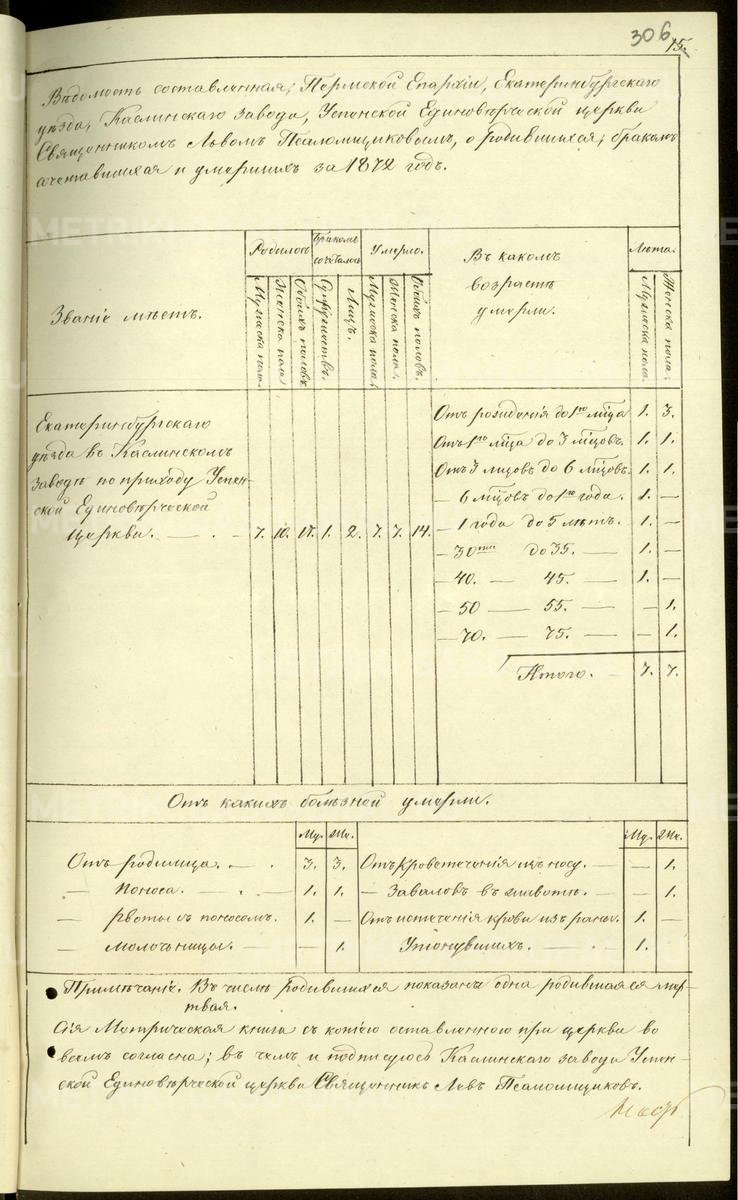 306
15.
Вѣдомость составленная, Пермской Епархіи, Екатеринбургскаго
уѣзда, Каслинскаго завода, Успенской Единовѣрческой церкви
Священникомъ Львомъ Псаломщиковымъ, о родившихся, бракомъ
сочетавшихся и умершихъ за 1872 годъ.
Званіе мѣстъ.
Родилось
Бракомъ сочеталось
Умерло.
Въ какомъ
возрастѣ
умерли.
Лѣта.
Мужеска пола.
Женска пола
Обоихъ половъ.
Супружествъ.
Лицъ.
Мужеска пола.
Женска пола.
Обоихъ половъ.
Мужеска пола.
Женска пола.
Екатеринбургскаго
уѣзда въ Каслинскомъ
заводѣ по приходу Успен-
ской Единовѣрческой
церкви. — . - 7. 10. 17. 1. 2. 7. 7. 14.
Отъ рожденія до 1го мѣсца 1. 3.
Отъ 1го мѣца до 3 мѣцовъ. 1. 1.
Отъ 3 мѣцовъ до 6 мѣцовъ. 1. 1.
— 6 мѣцовъ до 1го года. 1. —
— 1 года до 5 лѣтъ. 1. —
— 30ти до 35. — 1. —
— 40. — 45. — 1. —
— 50 — 55. — — 1.
— 70. — 75. — — 1.
Итого. — 7. 7.
Отъ какихъ болѣзней умерли.
Му. Же. Му. Же.
Отъ родимца. — . 3. 3. Отъ кровотеченія изъ носу. — — 1.
— Поноса. — . — 1. 1. — Заваловъ въ животѣ. — — 1.
— Рвоты съ поносомъ. 1. — Отъ истеченія крови изъ раны. 1. —
— Молочницы. — — 1. Утонувшихъ. — . 1. —
Примѣчаніе. Въ числѣ родившихся показана одна родившаяся мер-
твая.
Сія Метрическая книга съ копіею оставленною при церкви во
всемъ согласна; въ чемъ и подписуюсь Каслинскаго завода Успен-
ской Единовѣрческой церкви Священникъ Левъ Псаломщиковъ.